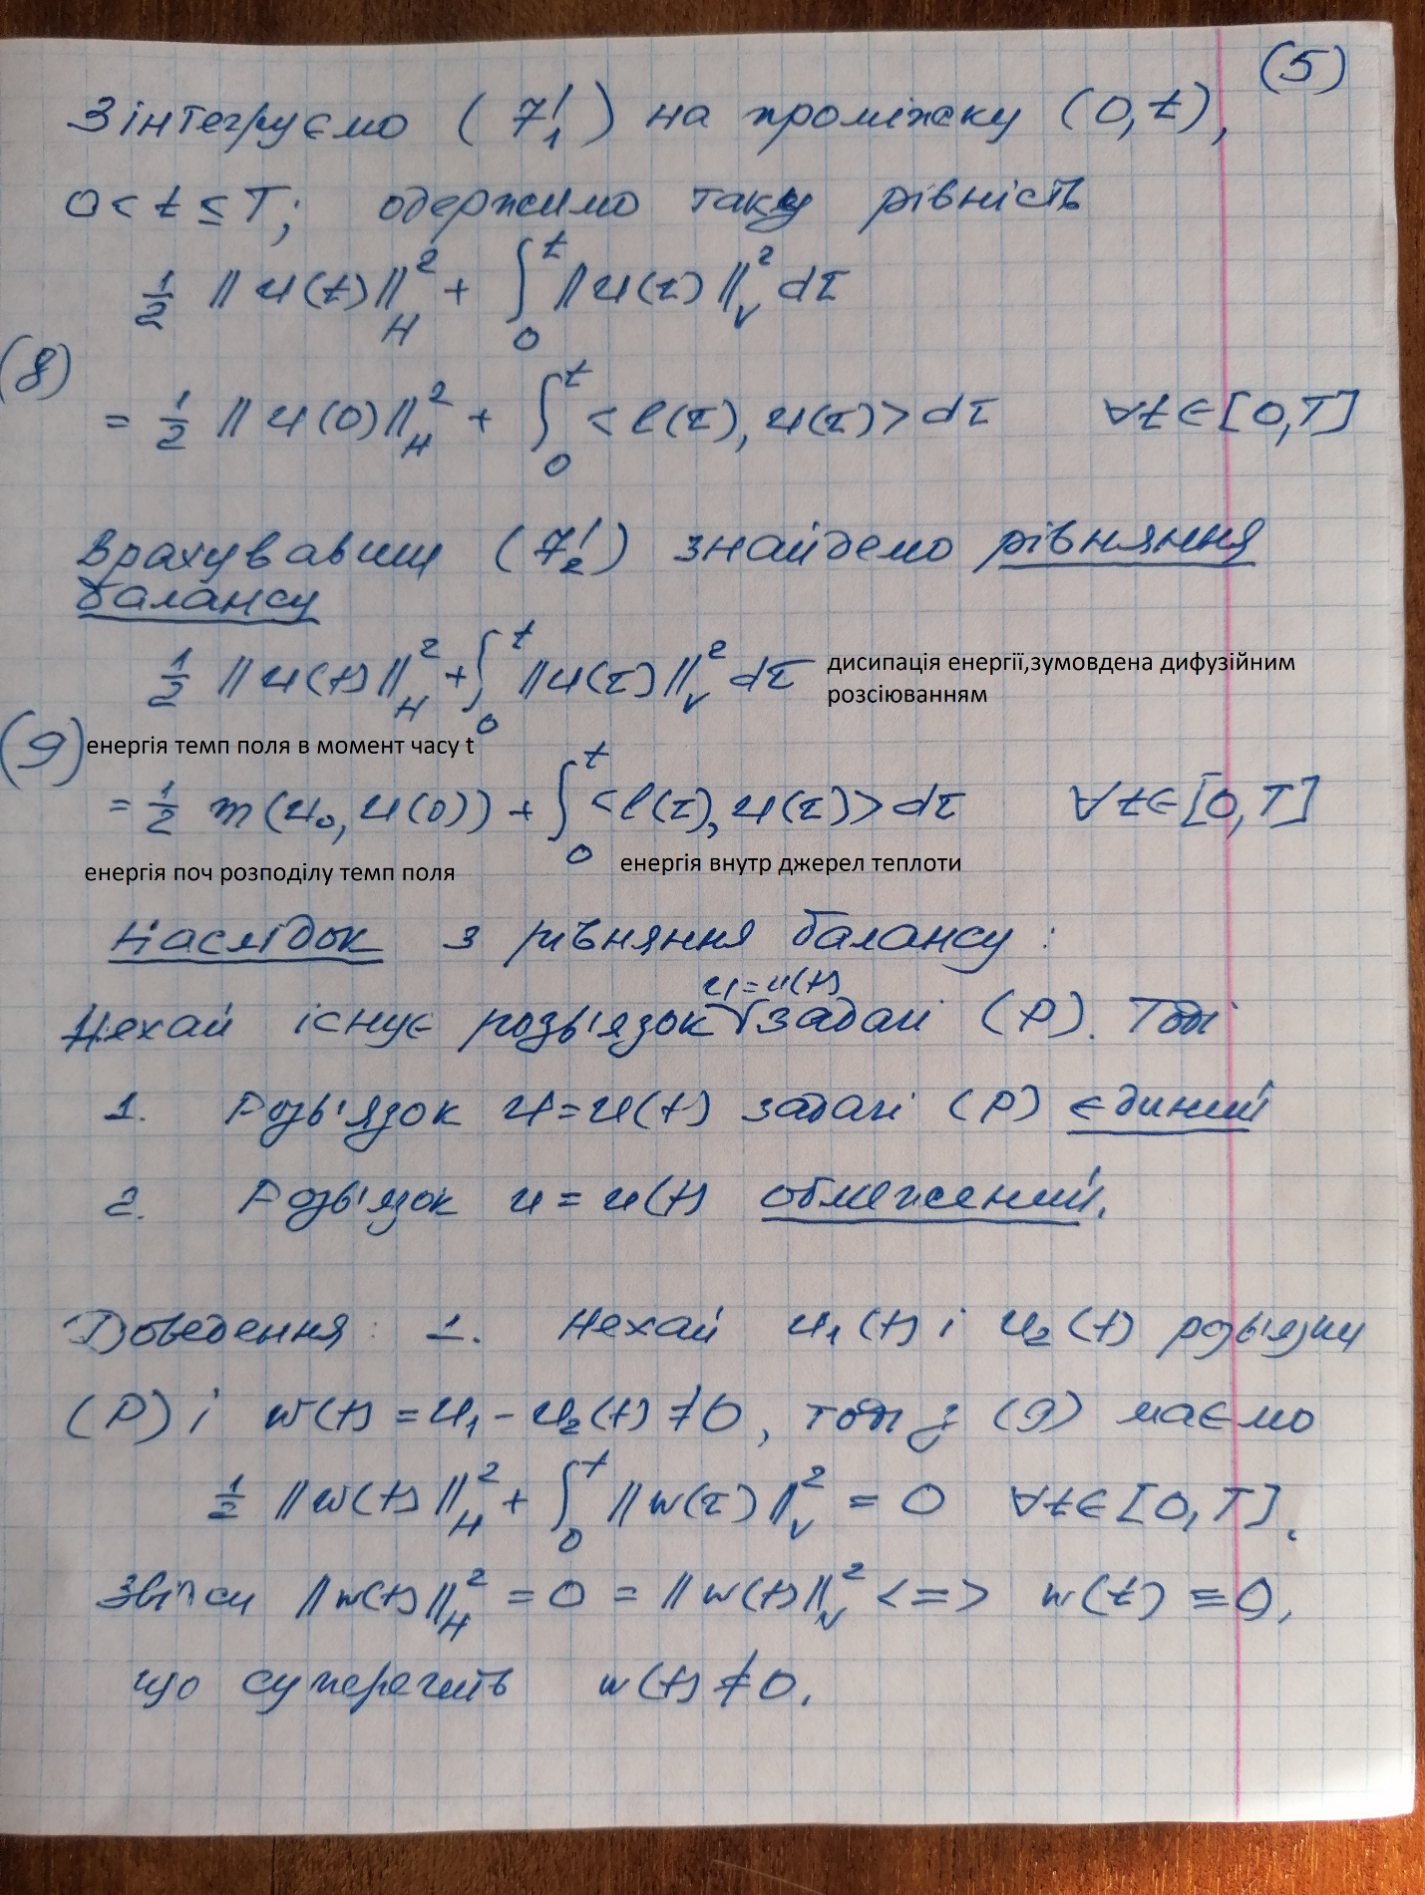 (5)
Зінтегруємо (7₁') на проміжку (0,t),
0 < t ≤ T; одержимо таку рівність
½ ||u(t)||²_H + ∫₀ᵗ ||u(τ)||²_V dτ
(8)
= ½ ||u(0)||²_H + ∫₀ᵗ <l(τ), u(τ)> dτ ∀t∈[0,T]
Врахувавши (7₂') знайдемо рівняння
балансу
½ ||u(t)||²_H + ∫₀ᵗ ||u(τ)||²_V dτ
дисипація енергії,зумовдена дифузійним
розсіюванням
(9)
енергія темп поля в момент часу t
= ½ m(u₀, u(0)) + ∫₀ᵗ <l(τ), u(τ)> dτ ∀t∈[0,T]
енергія поч розподілу темп поля
енергія внутр джерел теплоти
Наслідок з рівняння балансу :
u=u(t)
Нехай існує розв'язок √ задачі (P). Тоді
1. Розв'язок u=u(t) задачі (P) єдиний
2. Розв'язок u = u(t) обмежений.
Доведення : 1. Нехай u₁(t) і u₂(t) розв'язки
(P) і w(t) = u₁ - u₂(t) ≠ 0, тоді з (9) маємо
½ ||w(t)||²_H + ∫₀ᵗ ||w(τ)||²_V = 0 ∀t∈[0,T].
Звідси ||w(t)||²_H = 0 = ||w(t)||²_V <=> w(t) ≡ 0,
що суперечить w(t) ≠ 0.